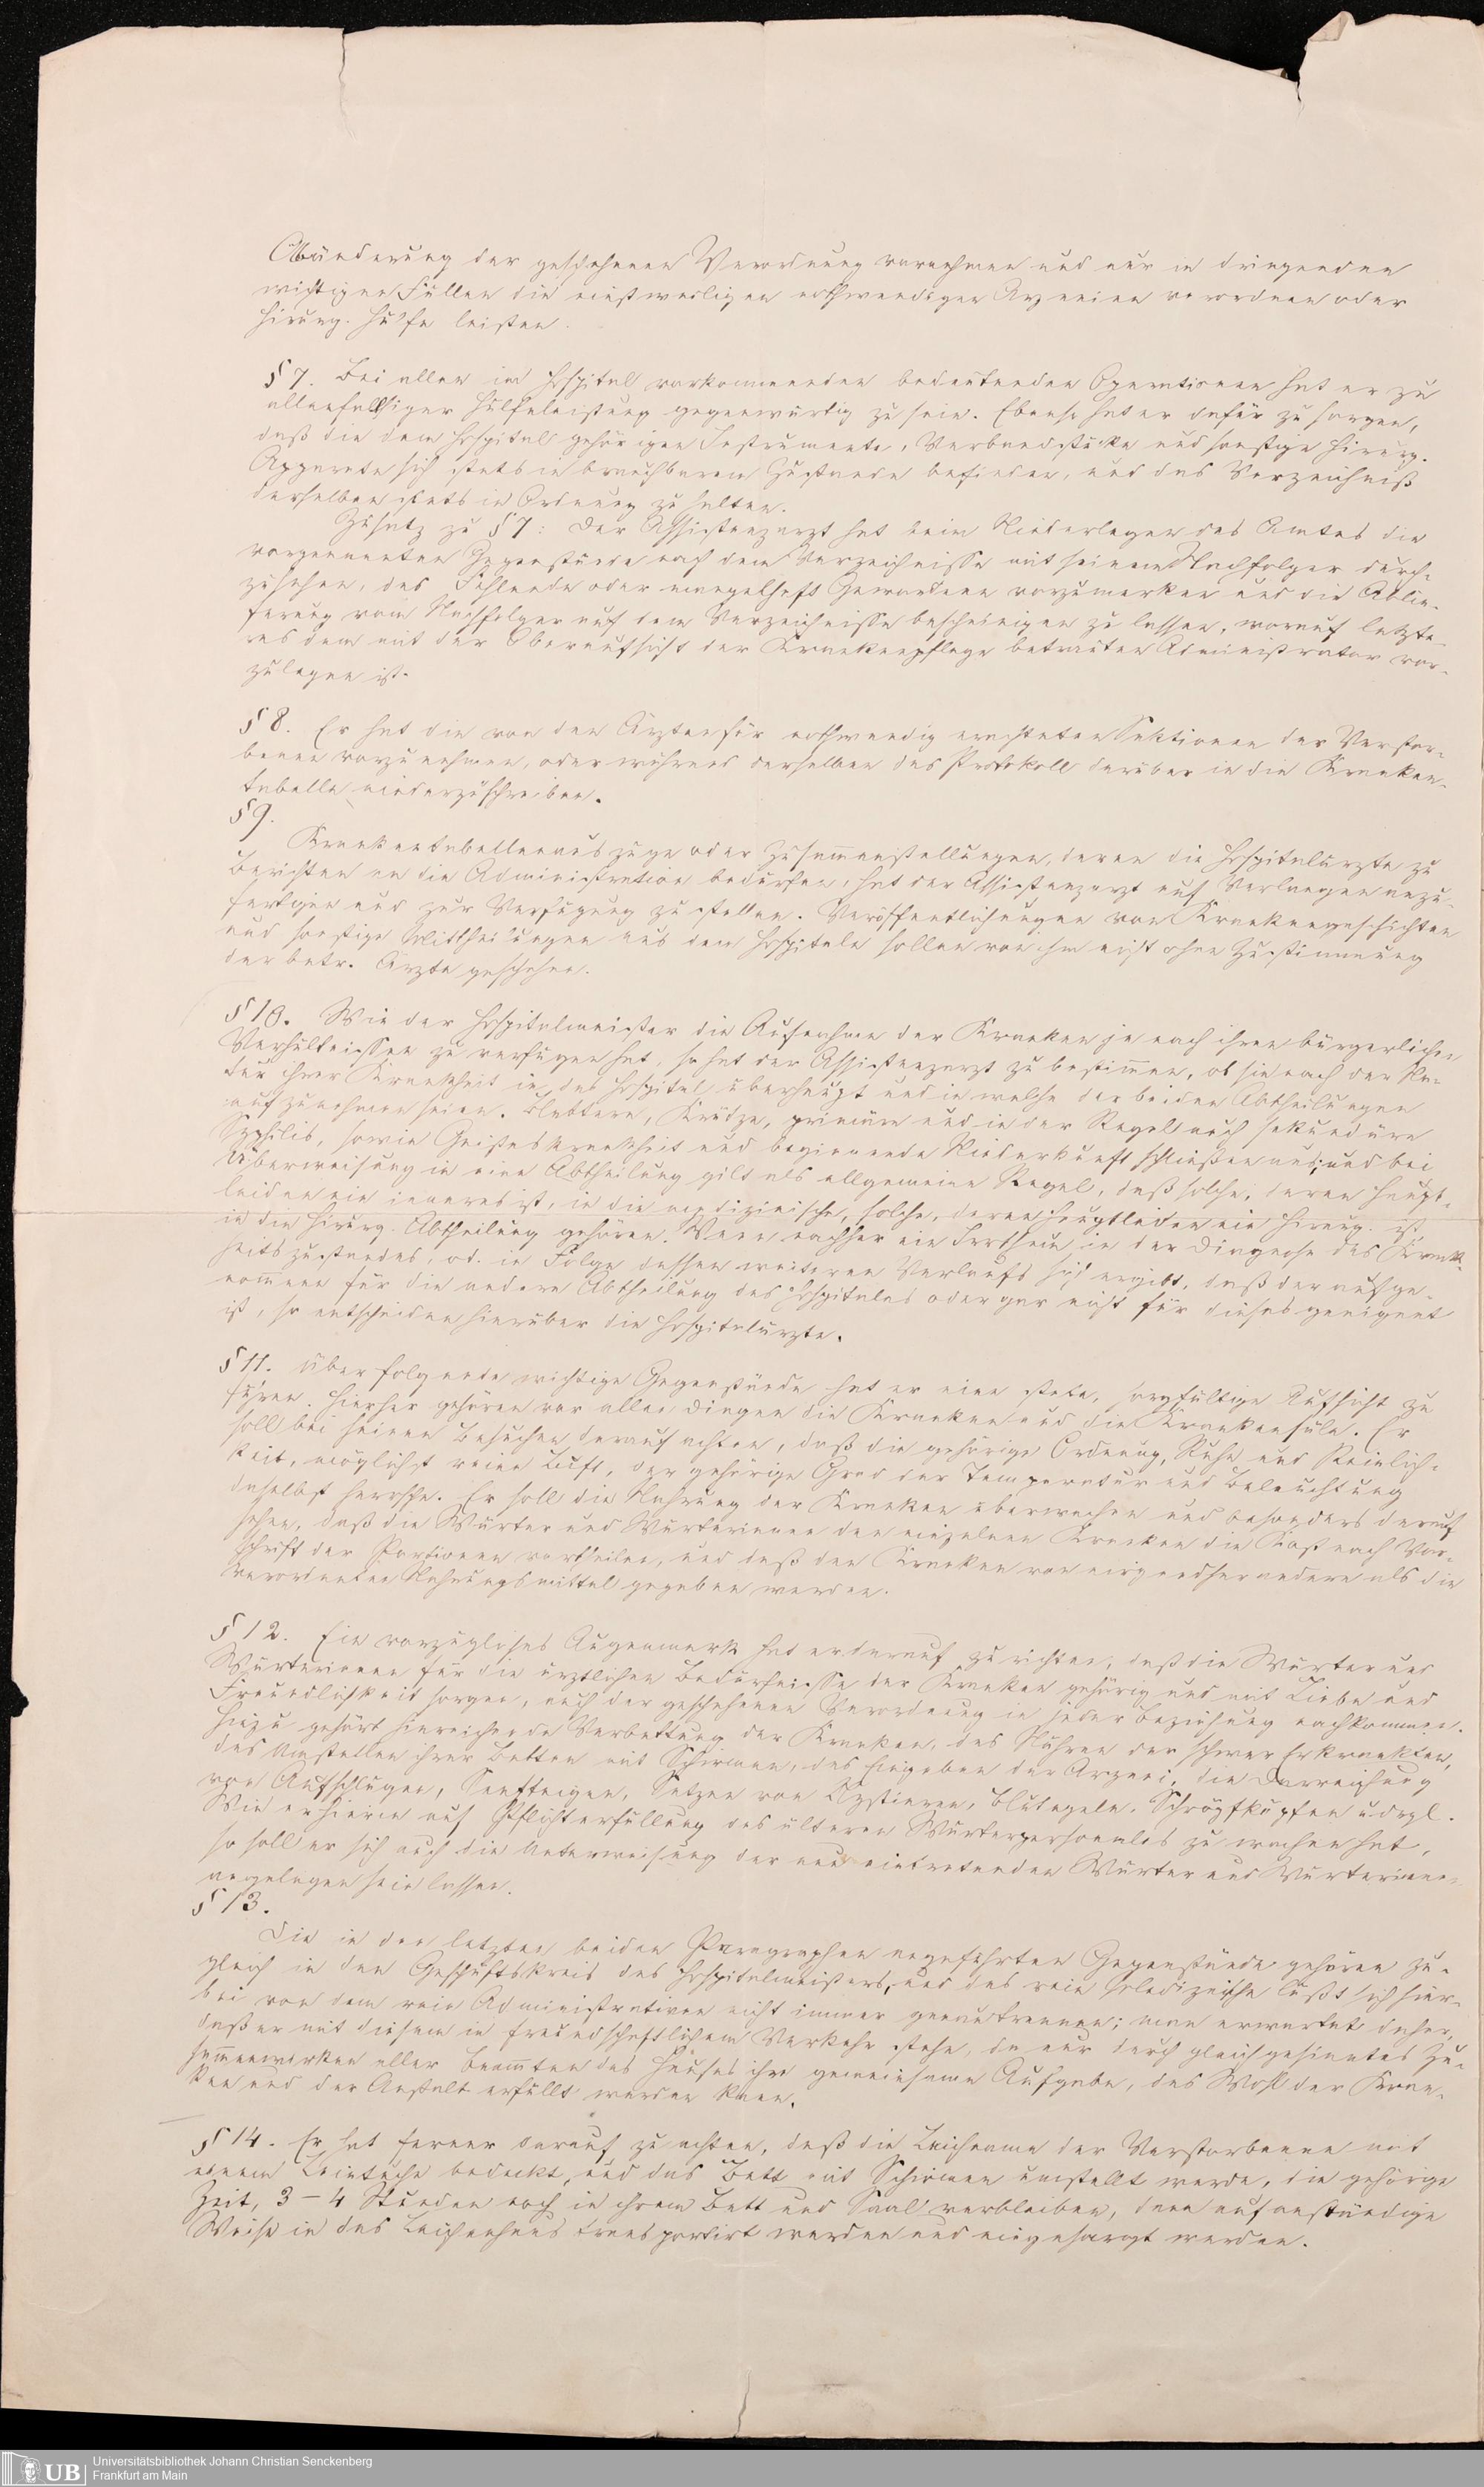 Abänderung der geschehenen Verordnung vornehmen und nur in dringenden
wichtigen Fällen die einstweiligen nothwendigen Arzneien verordnen oder
chirurg. Hülfe leisten.
§ 7. Bei allen im Hospital vorkommenden bedeutenden Operationen hat er zu
allenfallsiger Hülfeleistung gegenwärtig zu sein. Ebenso hat er dafür zu sorgen,
daß die dem Hospital gehörigen Instrumente, Verbandstücke und sonstige chirurg.
Apparate sich stets in brauchbarem Zustande befinden, und das Verzeichniß
derselben stets in Ordnung zu halten.
Zusatz zu § 7: Der Assistenzarzt hat beim Niederlegen des Amtes die
vorgenannten Gegenstände nach dem Verzeichnisse mit seinem Nachfolger durch-
zusehen, das Fehlende oder mangelhaft Gewordene vorzumerken und die Ablie-
ferung vom Nachfolger auf dem Verzeichnisse bescheinigen zu lassen, worauf letzte-
res dem mit der Oberaufsicht der Krankenpflege betrauten Administrator vor-
zulegen ist.
§ 8. Er hat die von den Ärzten für nothwendig erachteten Sektionen der Verstor-
benen vorzunehmen, oder während derselben das Protokoll darüber in die Kranken-
tabelle niederzuschreiben.
§ 9.
Krankentabellenauszüge oder Zusammenstellungen, deren die Hospitalärzte zu
Berichten an die Administration bedürfen, hat der Assistenzarzt auf Verlangen anzu-
fertigen und zur Verfügung zu stellen. Veröffentlichungen von Krankengeschichten
und sonstige Mittheilungen aus dem Hospitale sollen von ihm nicht ohne Zustimmung
der betr. Ärzte geschehen.
§ 10. Wie der Hospitalmeister die Aufnahme der Kranken je nach ihren bürgerlichen
Verhältnissen zu verfügen hat, so hat der Assistenzarzt zu bestimmen, ob sie nach der Na-
tur ihrer Krankheit in das Hospital überhaupt und in welche der beiden Abtheilungen
aufzunehmen seien. Blattern, Krätze, primäre und in der Regel auch sekundäre
Syphilis, sowie Geisteskrankheit und beginnende Niederkunft schließen aus; und bei
Überweisung in eine Abtheilung gilt als allgemeine Regel, daß solche, deren Haupt-
leiden ein inneres ist, in die medizinische, solche, deren Hauptleiden ein chirurg. ist,
in die chirurg. Abtheilung gehören. Wenn nachher ein Irrthum in der Diagnose des Krank-
heitszustandes, od. in Folge dessen weiteren Verlaufs sich ergibt, daß der aufge-
nommene für die andere Abtheilung des Hospitales oder gar nicht für dieses geeignet
ist, so entscheiden hierüber die Hospitalärzte.
§ 11. Über folgende wichtige Gegenstände hat er eine stete, sorgfältige Aufsicht zu
führen. Hierher gehören vor allen Dingen die Kranken und die Krankensäle. Er
soll bei seinen Besuchen darauf achten, daß die gehörige Ordnung, Ruhe und Reinlich-
keit, möglichst reine Luft, der gehörige Grad der Temperatur und Beleuchtung
daselbst herrsche. Er soll die Nahrung der Kranken überwachen und besonders darauf
sehen, daß die Wärter und Wärterinnen den einzelnen Kranken die Kost nach Vor-
schrift der Portionen vertheilen, und daß den Kranken von nirgendsher andere als die
verordneten Nahrungsmittel gegeben werden.
§ 12. Ein vorzügliches Augenmerk hat er darauf zu richten, daß die Wärter und
Wärterinnen für die ärztlichen Bedürfnisse der Kranken gehörig und mit Liebe und
Freundlichkeit sorgen, auch der geschehenen Verordnung in jeder Beziehung nachkommen.
Hiezu gehört hinreichende Verbettung der Kranken, das Führen der schwer Erkrankten,
das Umstellen ihrer Betten mit Schirmen, das Eingeben der Arznei, die Darreichung
von Aufschlägen, Senfteigen, Setzen von Klystieren, Blutegeln, Schröpfköpfen u. drgl.
Wie er hierin auf Pflichterfüllung des älteren Wärterpersonales zu wachen hat,
so soll er sich auch die Unterweisung der neu eintretenden Wärter und Wärterinnen
angelegen sein lassen.
§ 13.
Die in den letzten beiden Paragraphen angeführten Gegenstände gehören zu-
gleich in den Geschäftskreis des Hospitalmeisters, und das rein Medizinische läßt sich hier-
bei von dem rein Administrativen nicht immer genau trennen; man erwartet daher,
daß er mit diesem in freundschaftlichem Verkehr stehe, da nur durch gleichgesinntes Zu-
sammenwirken aller Beamten des Hauses ihre gemeinsame Aufgabe, das Wohl der Kran-
ken und der Anstalt erfüllt werden kann.
§ 14. Er hat ferner darauf zu achten, daß die Leichname der Verstorbenen mit
einem Leintuche bedeckt, und das Bett mit Schirmen umstellt werde, die gehörige
Zeit, 3 – 4 Stunden noch in ihrem Bett und Saal verbleiben, dann auf anständige
Weise in das Leichenhaus transportirt werden und eingesargt werden.
UB Universitätsbibliothek Johann Christian Senckenberg
Frankfurt am Main